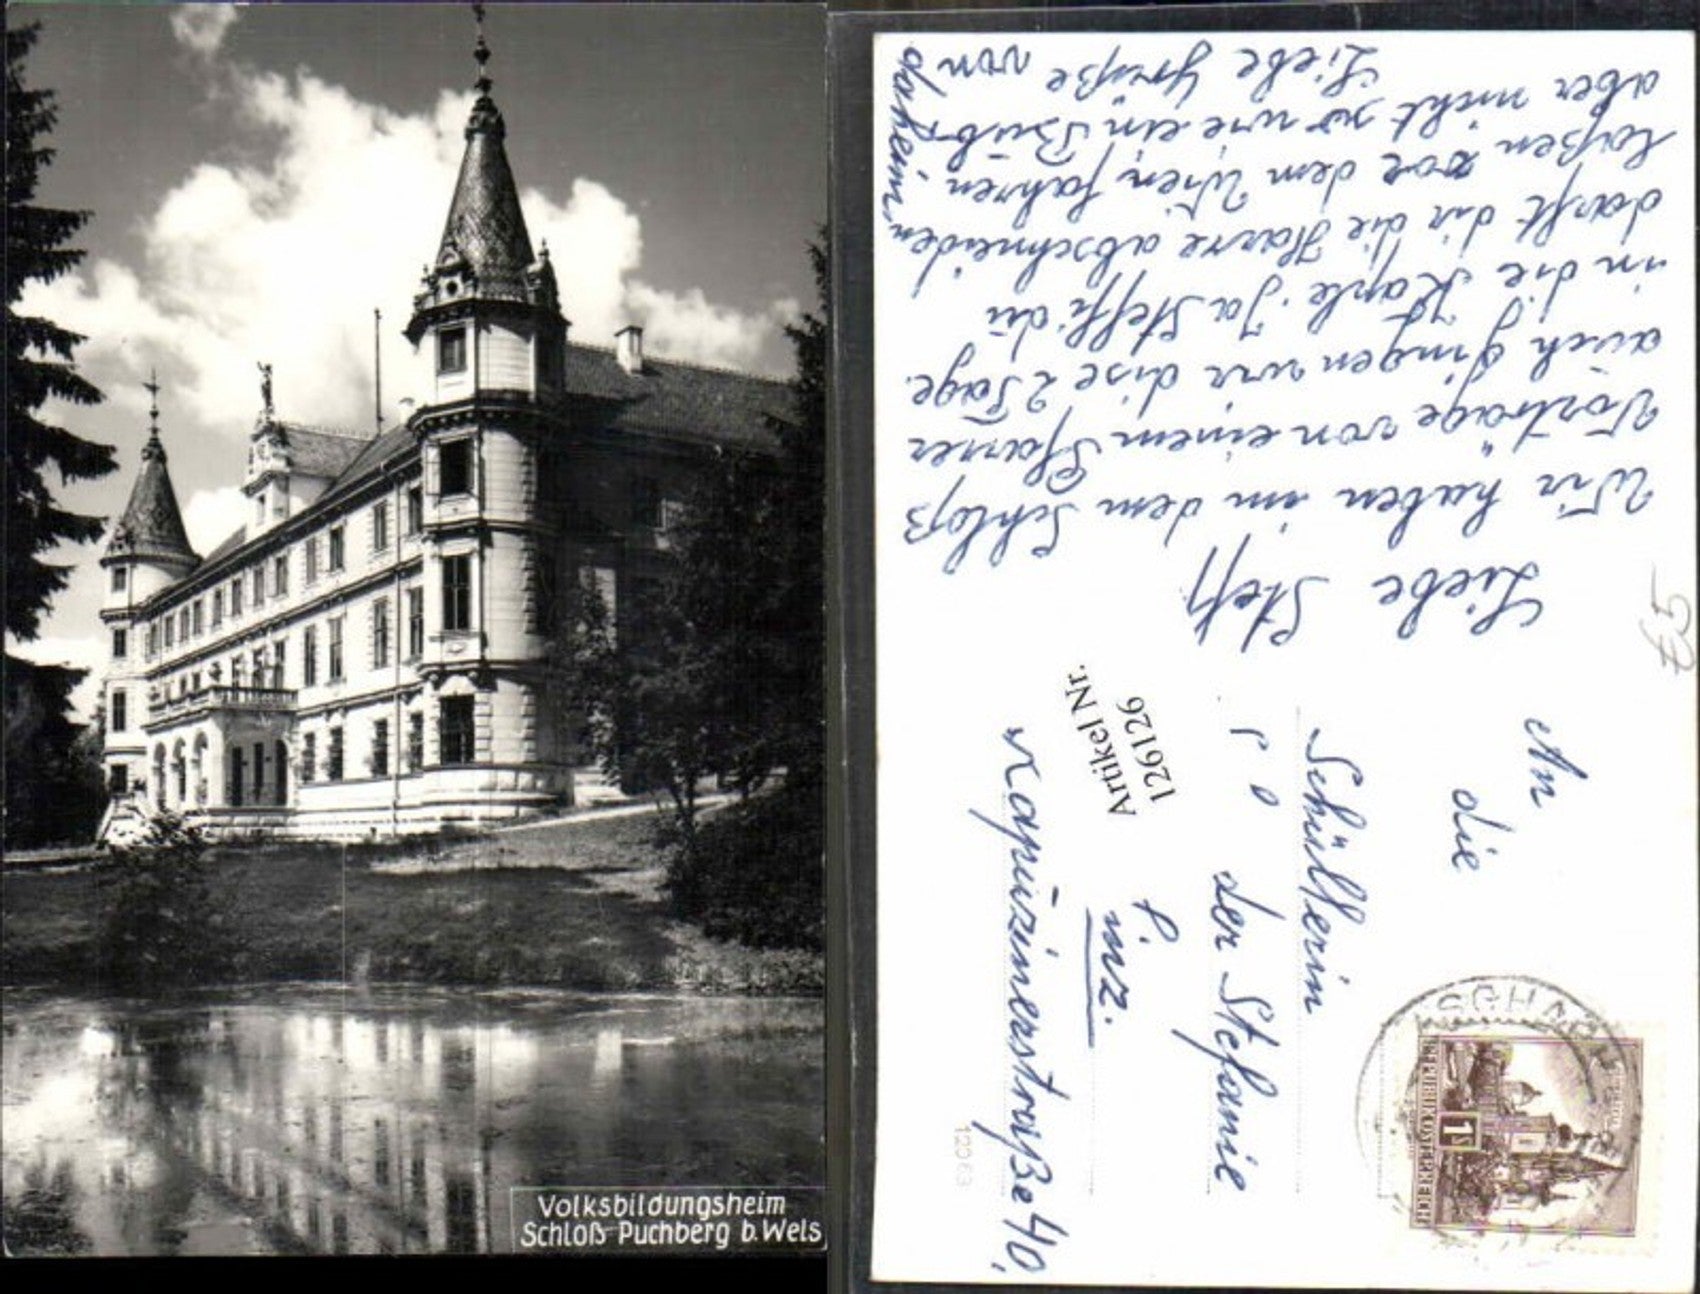 Volksbildungsheim
Schloß Puchberg b. Wels
Liebe Steffi
Wir haben im dem Schloß
Vorträge von einem Pfarrer
auch gingen wir dise 2 Tage.
in die Kaple. Ja Steffi du
darft dir die Harre abschneiden
laßen vor dem Wien fahren,
aber nicht so wie ein Bub.
Liebe Grüße von
An
die
Schüllerin
der Stefanie
Linz.
Kapuzinerstraße 40.
Artikel Nr.
126126
12063
€5
REPUBLIK ÖSTERREICH
1S